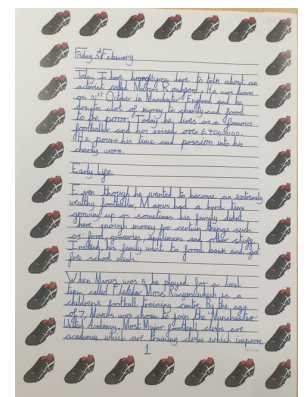 Friday 5th February
Today I have brought you here to talk about an
activist called Marcus Rashford. He was born
on 31st October in Manchester England and he
donates alot of money to charity and food
to the poor. Today he lives as a famous
footballer and has raised over
He pours his time and passion into his
charity work.
Early life
Even though he wanted to become an extremely
wealthy footballer, Marcus had a hard time
growing up as sometimes his family didnt
have enough money for certain things such
as food, groceries, appliances and other stuff.
Instead his family went to food bank and got
free school meals.
When Marcus was 5 he played for a local
team called Fletcher Moss Rangers which is a
childrens football training centre. By the age
of 7, Marcus was chosen to join the Manchester
United Academy. Most Major football clubs are
academies which are training clubs which improve
1